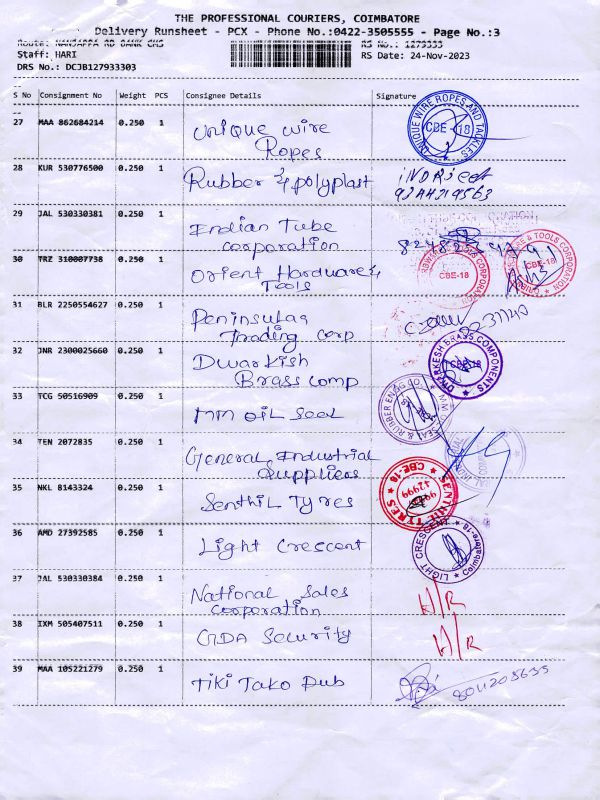 THE PROFESSIONAL COURIERS, COIMBATORE
Delivery Runsheet - PCX - Phone No.:0422-3505555 - Page No.:3
Route: NANJAPPA RD BANK CHS
RS No.: 1279333
Staff: HARI
RS Date: 24-Nov-2023
DRS No.: DCJB127933303
S No Consignment No Weight PCS Consignee Details Signature
27 MAA 862684214 0.250 1 Unique wire
Ropes
UNIQUE WIRE ROPES AND TACKLES
CBE - 18
28 KUR 530776500 0.250 1 Rubber & polyplast
INDRJEET
29 JAL 530330381 0.250 1 Indian Tube
corporation
30 TRZ 310007738 0.250 1 Orient Hardware &
Tools
CBE-18
CBE-18
31 BLR 2250554627 0.250 1 Peninsular
Trading corp
32 JNR 2300025660 0.250 1 Dwarkish
Brass comp
DWARKESH BRASS COMPONENTS
33 TCG 50516909 0.250 1 MM oil seal
34 TEN 2072835 0.250 1 General Industrial
Suppliers
35 NKL 8143324 0.250 1 Senthil Tyres
SENTHIL TYRES
CBE-18
36 AMD 27392585 0.250 1 Light Crescent
LIGHT CRESCENT
37 JAL 530330384 0.250 1 National Sales
corporation
H/R
38 IXM 505407511 0.250 1 GDA Security
H/R
39 MAA 105221279 0.250 1 Tiki Tako Pub